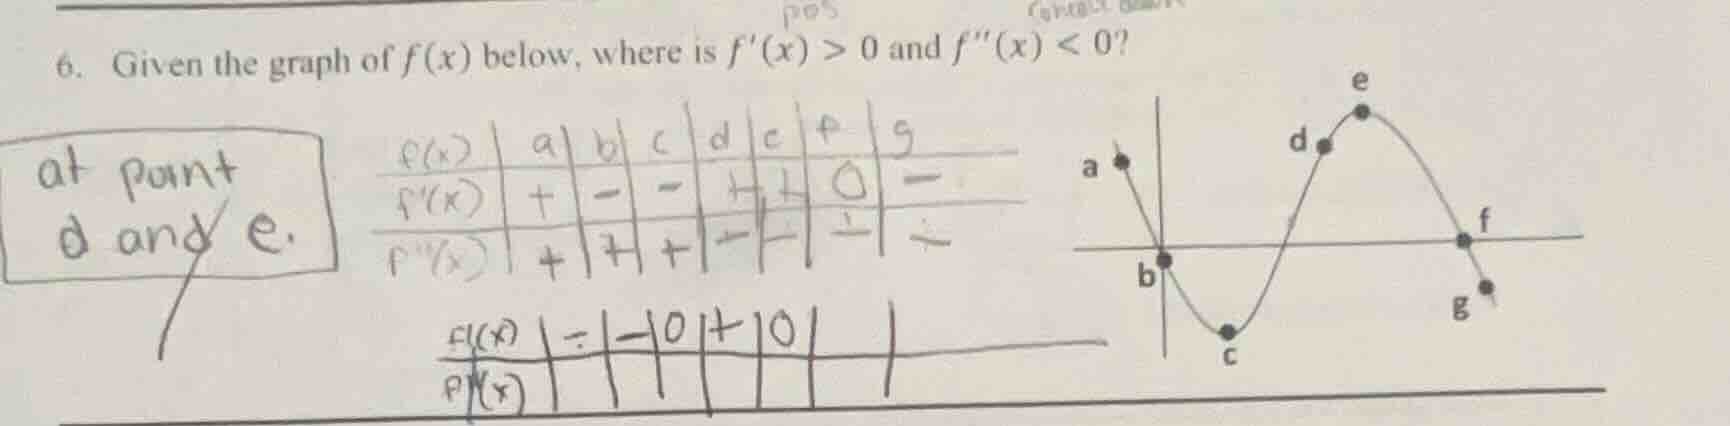 pos
6. Given the graph of f(x) below, where is f'(x) > 0 and f''(x) < 0?
at point
d and e.
f(x) a b c d e f g
f'(x) + - - + + 0 -
f''(x) + + + - - - -
f'(x) - - 0 + 0
f''(x)
a
b
c
d
e
f
g